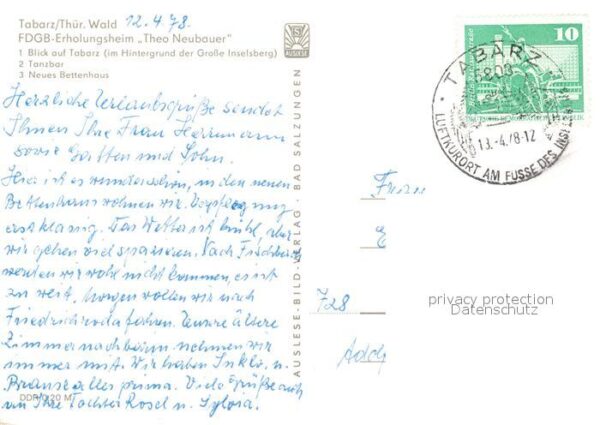 Tabarz/Thür. Wald 12.4.78.
FDGB-Erholungsheim „Theo Neubauer"
1 Blick auf Tabarz (im Hintergrund der Große Inselsberg)
2 Tanzbar
3 Neues Bettenhaus
Herzliche Urlaubsgrüße sendet
Ihnen Ihre Frau Herrmann
sowie Gatten und Sohn.
Hier ist es wunderschön, in den neuen
Bettenhaus wohnen wir. Verpflegung
erstklassig. Das Wetter ist kühl, aber
wir gehen viel spazieren. Nach Fischbach
werden wir wohl nicht kommen, es ist
zu weit. Morgen wollen wir nach
Friedrichroda fahren. Unsere ältere
Zimmernachbarin nehmen wir
immer mit. Wir haben Inklo. u.
Brause alles prima. Viele Grüße auch
an Ihre Tochter Rosel u. Sylvia.
DDR 0,20 M
AUSLESE-BILD-VERLAG · BAD SALZUNGEN
10
TABARZ
5808
13.-4.78-12
LUFTKURORT AM FUSSE DES INSELSBERG
Frau
E
728
Adolf
privacy protection
Datenschutz